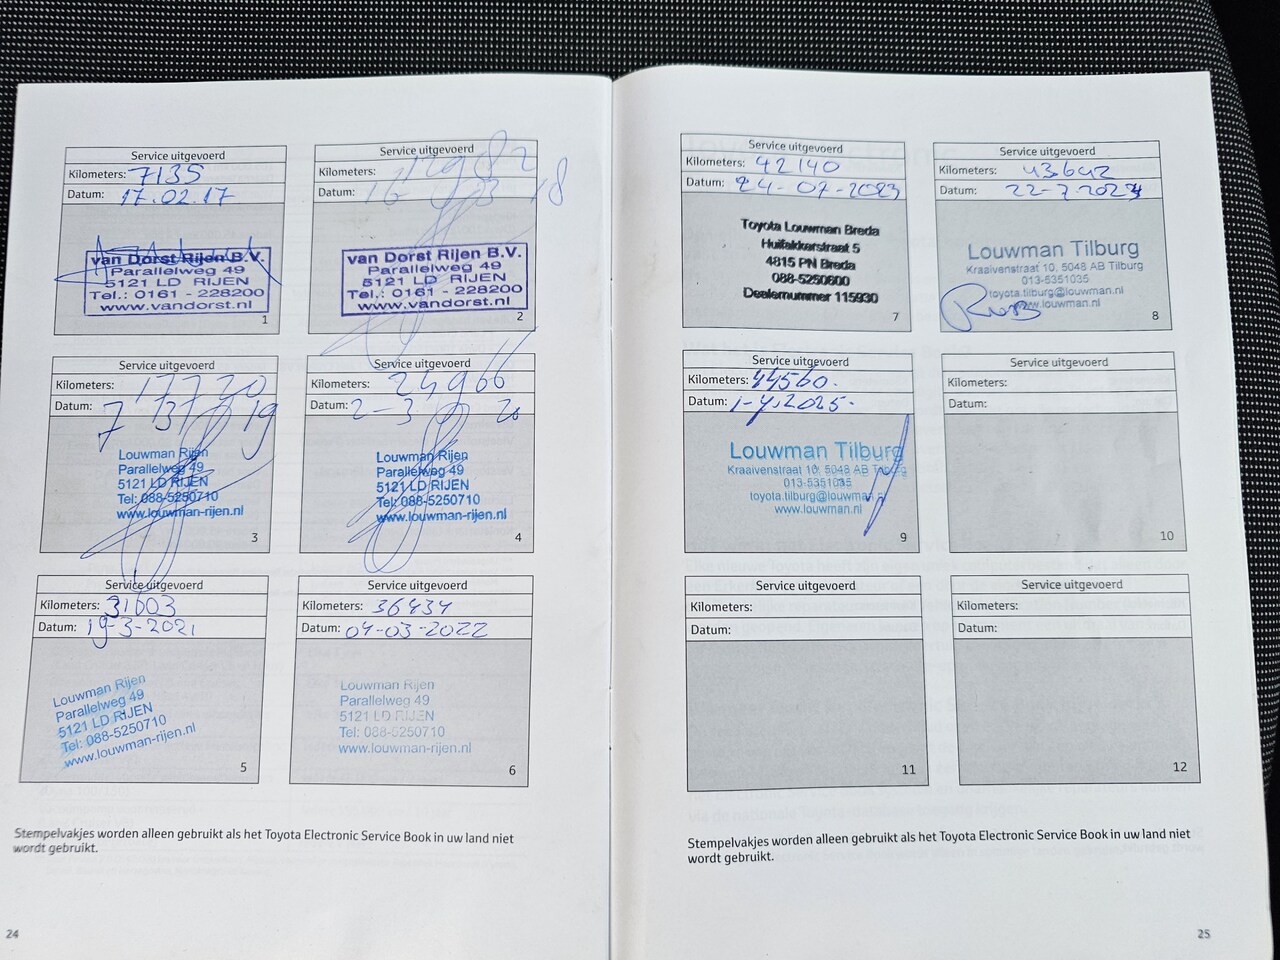 Service uitgevoerd
Kilometers: 7135
Datum: 17.02.17
van Dorst Rijen B.V.
Parallelweg 49
5121 LD RIJEN
Tel.: 0161 - 228200
www.vandorst.nl
1
Service uitgevoerd
Kilometers: 12982
Datum: 16 03 18
van Dorst Rijen B.V.
Parallelweg 49
5121 LD RIJEN
Tel.: 0161 - 228200
www.vandorst.nl
2
Service uitgevoerd
Kilometers: 17720
Datum: 7 3 19
Louwman Rijen
Parallelweg 49
5121 LD RIJEN
Tel: 088-5250710
www.louwman-rijen.nl
3
Service uitgevoerd
Kilometers: 24966
Datum: 2-3 20
Louwman Rijen
Parallelweg 49
5121 LD RIJEN
Tel: 088-5250710
www.louwman-rijen.nl
4
Service uitgevoerd
Kilometers: 31603
Datum: 19-3-2021
Louwman Rijen
Parallelweg 49
5121 LD RIJEN
Tel: 088-5250710
www.louwman-rijen.nl
5
Service uitgevoerd
Kilometers: 36434
Datum: 04-03-2022
Louwman Rijen
Parallelweg 49
5121 LD RIJEN
Tel: 088-5250710
www.louwman-rijen.nl
6
Stempelvakjes worden alleen gebruikt als het Toyota Electronic Service Book in uw land niet
wordt gebruikt.
24
Service uitgevoerd
Kilometers: 42140
Datum: 24-07-2023
Toyota Louwman Breda
Huifakkerstraat 5
4815 PN Breda
088-5250600
Dealernummer 115930
7
Service uitgevoerd
Kilometers: 43642
Datum: 22-7-2024
Louwman Tilburg
Kraaivenstraat 10, 5048 AB Tilburg
013-5351035
toyota.tilburg@louwman.nl
www.louwman.nl
8
Service uitgevoerd
Kilometers: 44560.
Datum: 1-4.2025.
Louwman Tilburg
Kraaivenstraat 10, 5048 AB Tilburg
013-5351035
toyota.tilburg@louwman.nl
www.louwman.nl
9
Service uitgevoerd
Kilometers:
Datum:
10
Service uitgevoerd
Kilometers:
Datum:
11
Service uitgevoerd
Kilometers:
Datum:
12
Stempelvakjes worden alleen gebruikt als het Toyota Electronic Service Book in uw land niet
wordt gebruikt.
25